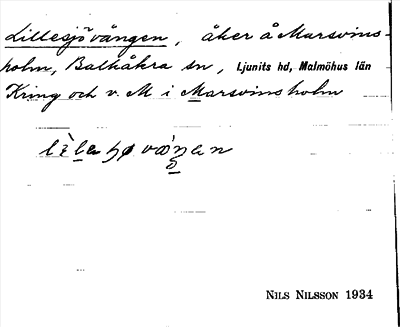 Lillesjövången, åker å Marsvins-
holm, Balkåkra sn, Ljunits hd, Malmöhus län
Kring och v. M i Marsvinsholm
NILS NILSSON 1934